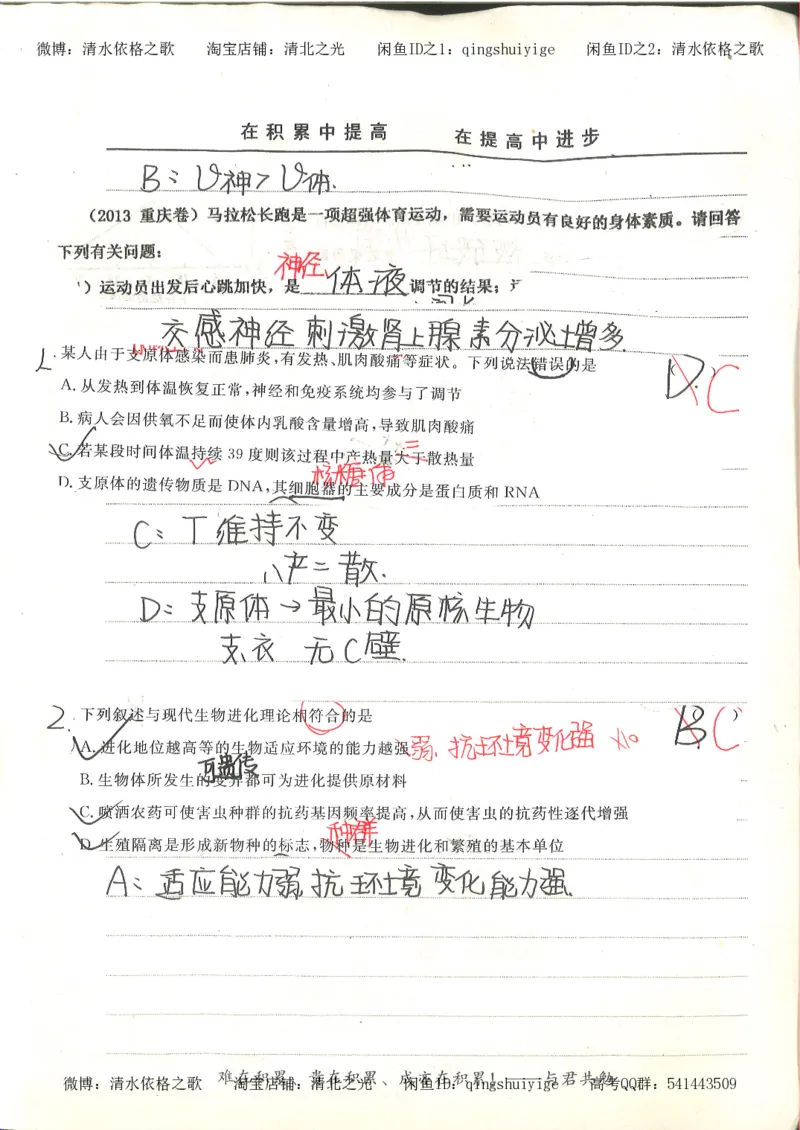 微博：清水依格之歌 淘宝店铺：清北之光 闲鱼ID之1：qingshuiyige 闲鱼ID之2：清水依格之歌
在积累中提高 在提高中进步
B：υ神＞υ体.
（2013 重庆卷）马拉松长跑是一项超强体育运动，需要运动员有良好的身体素质。请回答
下列有关问题：
神经、
）运动员出发后心跳加快，是 体液 调节的结果；
交感神经刺激肾上腺素分泌增多.
1. 某人由于支原体感染而患肺炎,有发热、肌肉酸痛等症状。下列说法错误的是 （D.） C
A. 从发热到体温恢复正常,神经和免疫系统均参与了调节
B. 病人会因供氧不足而使体内乳酸含量增高,导致肌肉酸痛
C. 若某段时间体温持续 39 度则该过程中产热量大于散热量
核糖体
D. 支原体的遗传物质是 DNA,其细胞器的主要成分是蛋白质和 RNA
C：T维持不变
∴产=散.
D：支原体→最小的原核生物
支、衣 无C壁.
2. 下列叙述与现代生物进化理论相符合的是 （B.） C
A. 进化地位越高等的生物适应环境的能力越强 弱.抗环境变化强
可遗传
B. 生物体所发生的变异都可为进化提供原材料
C. 喷洒农药可使害虫种群的抗药基因频率提高,从而使害虫的抗药性逐代增强
种群
D. 生殖隔离是形成新物种的标志,物种是生物进化和繁殖的基本单位
A：适应能力弱,抗环境变化能力强.
难在积累、贵在积累、成亦在积累！——与君共勉
微博：清水依格之歌 淘宝店铺：清北之光 闲鱼ID：qingshuiyige 高考QQ群：541443509